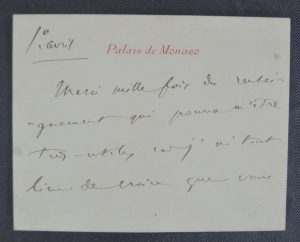 1er avril
Palais de Monaco
Merci mille fois du rensei-
gnement qui pourra m'être
très-utile, car j'ai tout
lieu de croire que vous